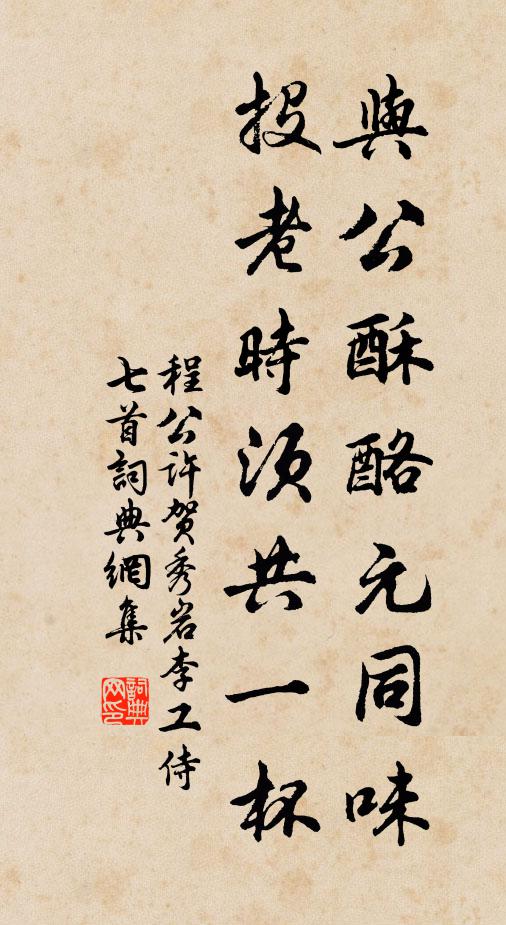 與公酥酪元同味
投老時須共一杯
程公許賀秀岩李工侍
七首詞典網集
詞典
网印